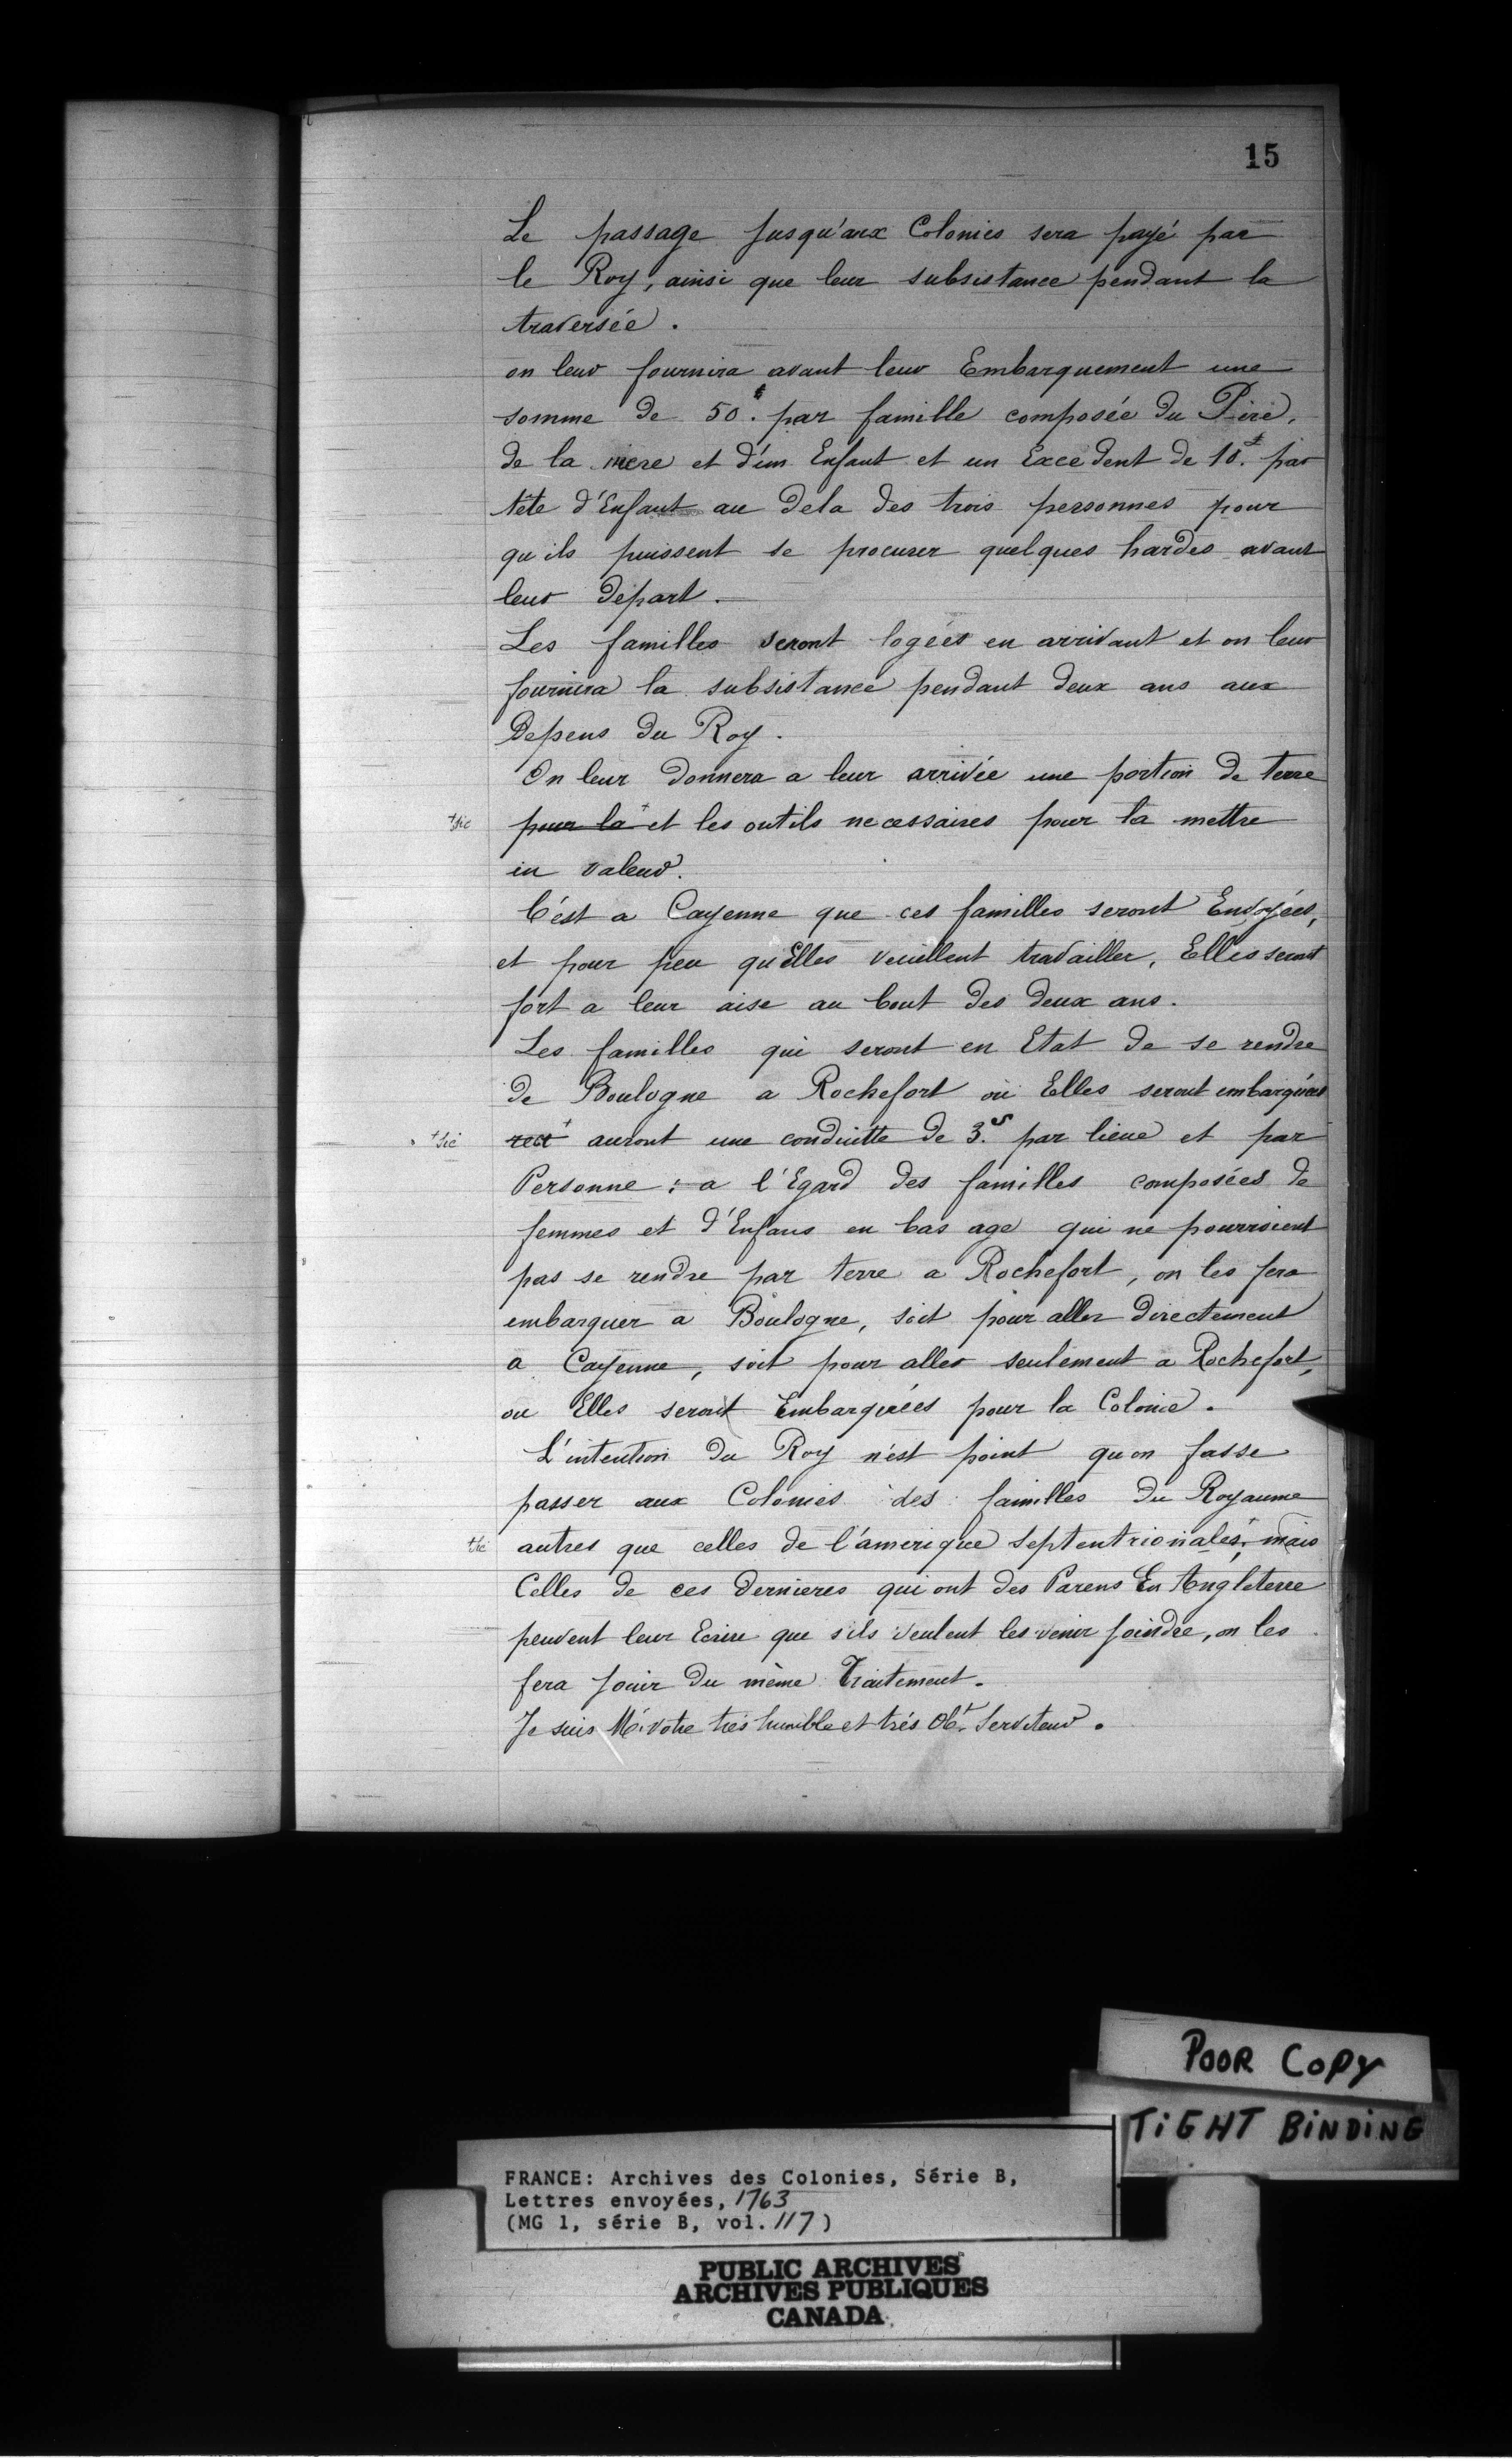 15
Le passage jusqu'aux Colonies sera payé par
le Roy, ainsi que leur subsistance pendant la
traversée.
on leur fournira avant leur Embarquement une
somme de 50.₶ par famille composée du Père,
de la mere et d'un Enfant et un Excedent de 10.₶ par
tête d'Enfant au dela des trois personnes pour
qu'ils puissent se procurer quelques hardes avant
leur depart.
Les familles seront logées en arrivant et on leur
fournira la subsistance pendant deux ans aux
Depens du Roy.
On leur donnera a leur arrivée une portion de terre
+sic pour la + et les outils necessaires pour la mettre
en valeur.
C'ést a Cayenne que ces familles seront Envoyées,
et pour peu qu'Elles veuillent travailler, Elles seront
fort a leur aise au bout des deux ans.
Les familles qui seront en Etat de se rendre
de Boulogne a Rochefort où Elles seront embarquées
+sic rect + auront une conduitte de 3.s par lieue et par
Personne; a l'Egard des familles composées de
femmes et d'Enfans en bas age qui ne pourroient
pas se rendre par terre a Rochefort, on les fera
embarquer a Boulogne, soit pour aller directement
a Cayenne, soit pour aller seulement a Rochefort,
ou Elles seront Embarquées pour la Colonie.
L'intention du Roy n'ést point qu'on fasse
passer aux Colonies des familles du Royaume
+sic autres que celles de l'amerique septentrionales,+ mais
Celles de ces dernieres qui ont des Parens En Angleterre
peuvent leur Ecrire que s'ils veulent les venir joindre, on les
fera jouir du même Traitement.
Je suis M. votre très humble et trés Obt. Serviteur.
POOR COPY
TIGHT BINDING
FRANCE: Archives des Colonies, Série B,
Lettres envoyées, 1763
(MG 1, série B, vol. 117)
PUBLIC ARCHIVES
ARCHIVES PUBLIQUES
CANADA